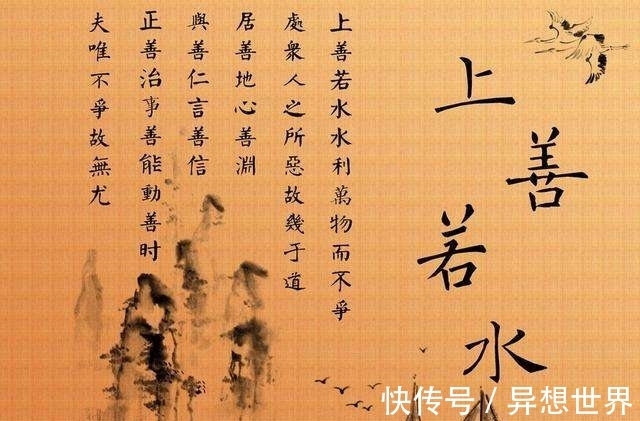 上善若水
上善若水水利萬物而不爭
處衆人之所惡故幾于道
居善地心善淵
與善仁言善信
正善治事善能動善时
夫唯不爭故無尤
快传号/异想世界